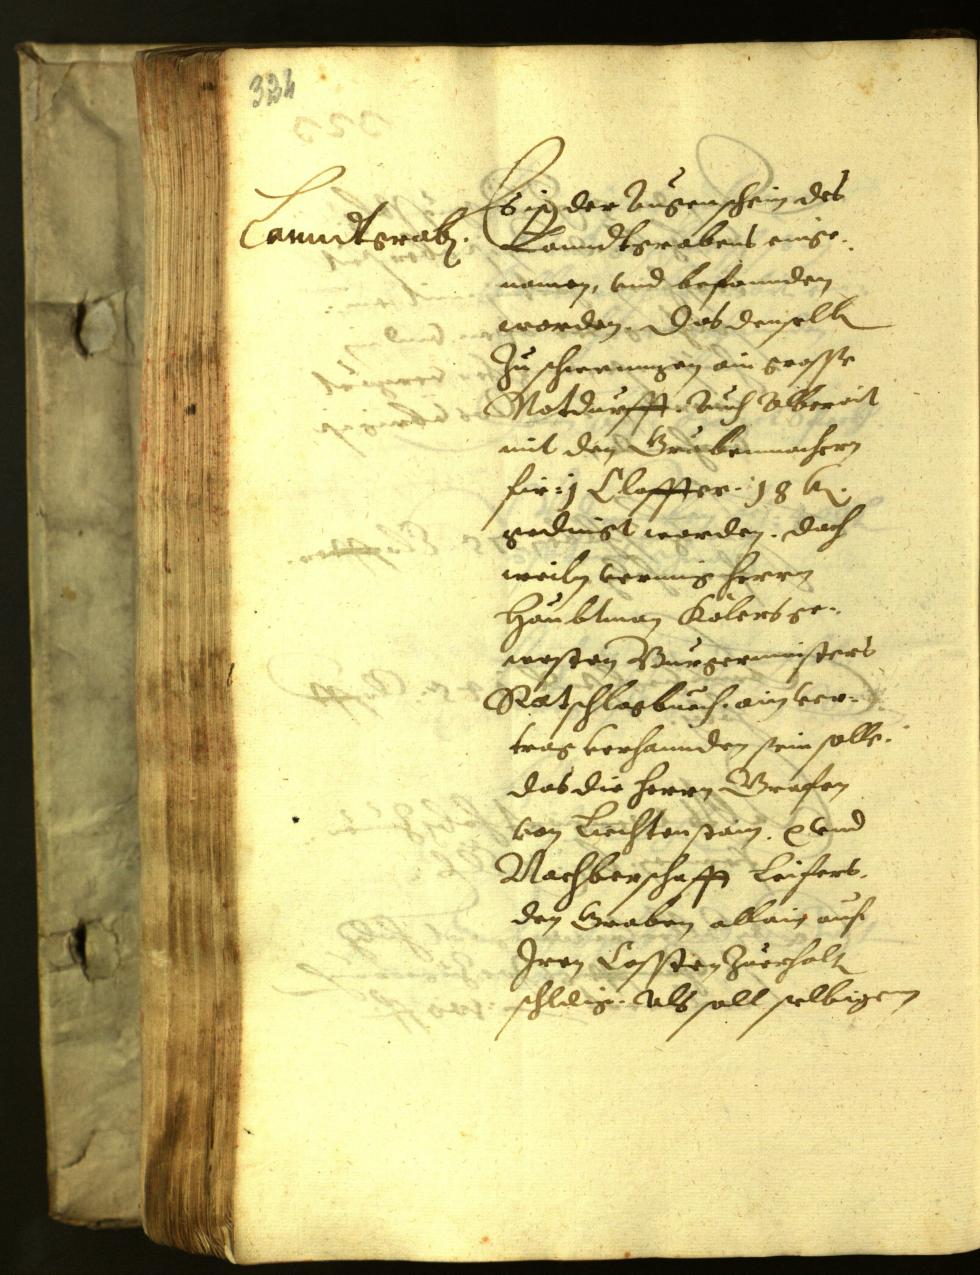 324
Lanndtgrabn.
Es ist der Augenschein des
Lanndtgrabens einge-
nomen, und befannden
worden. Das denselbn
zu schierungen ain grosse
Notdurfft. Auch Albereit
mit den Grabenmachern
fir 1 Claffter. 18 kr.
gedingt worden. Doch
weiln vermig herrn
Haubtman Kölers ge-
westen Burgermaisters
Ratschlagbuech. ain ver-
trag verhannden sein solle.
das die herrn Grafen
von Liechtenstain. und
Nachberschafft Leifers.
den Graben allain auf
Iren Cossten zuerhaltn
schldig. Als soll selbigem